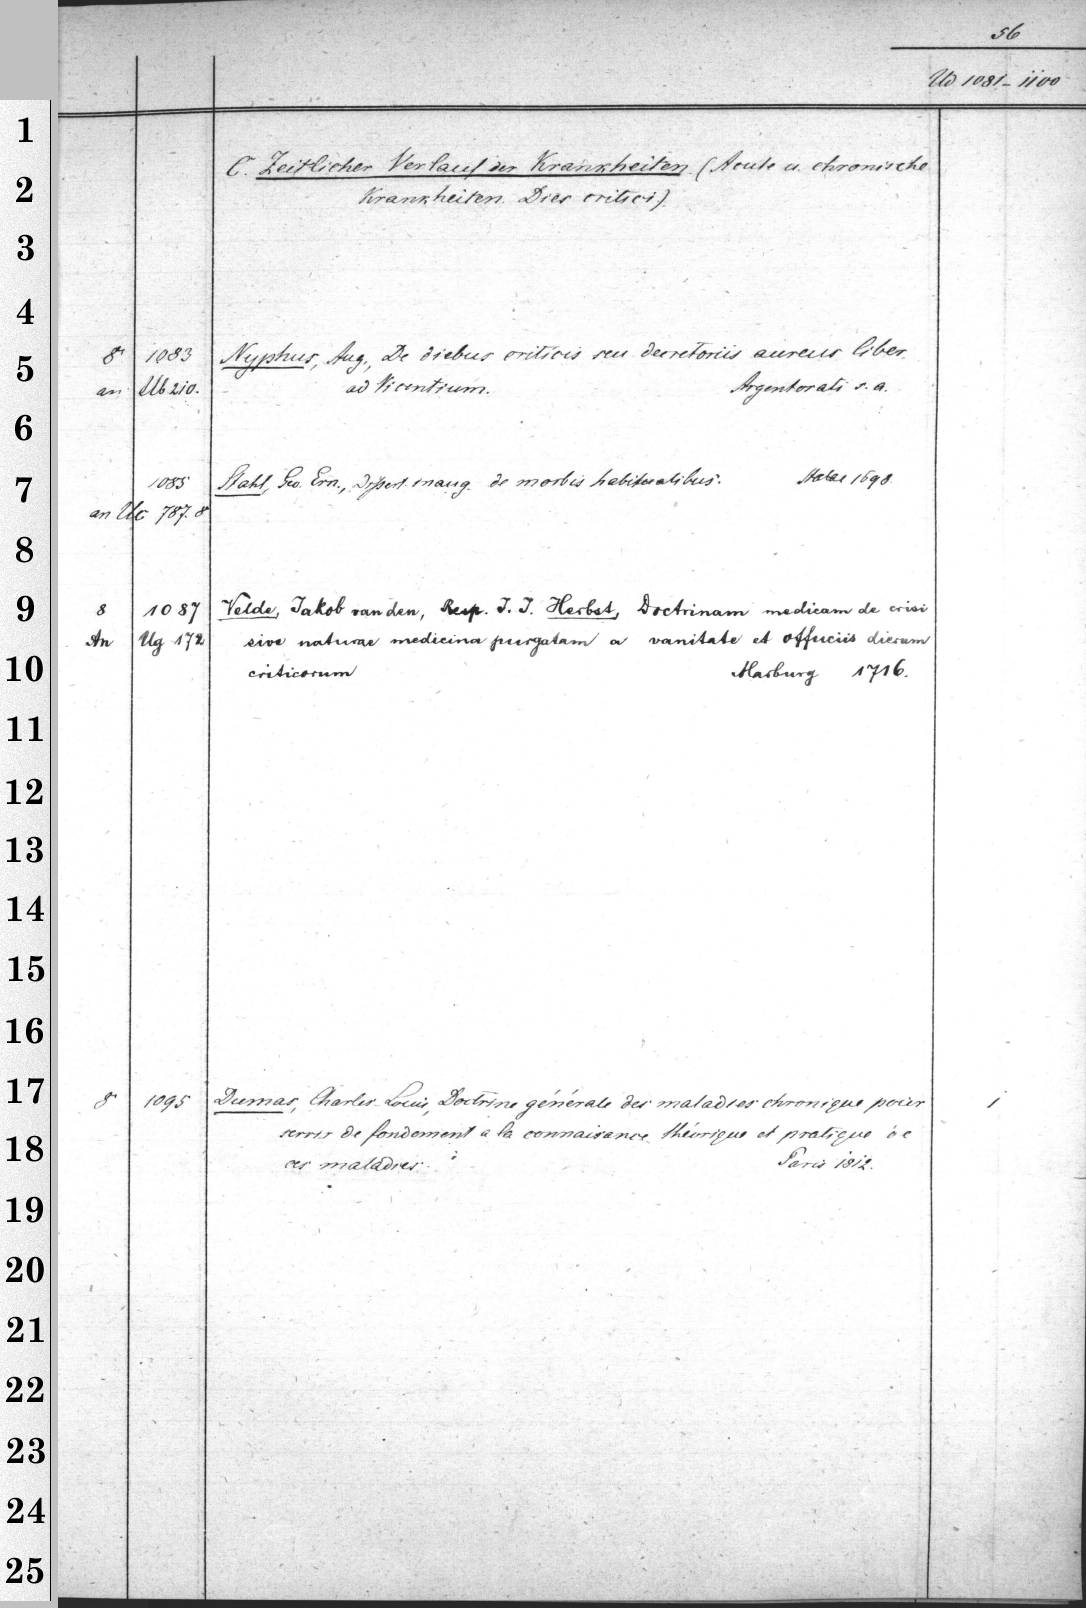 56
Ud 1081-1100
C. Zeitlicher Verlauf der Krankheiten (Acute u. chronische
Krankheiten. Dies critici).
8° 1083 Nyphus, Aug., De diebus criticis seu decretoriis aureus liber
an Ub 210. ad Vicentium. Argentorati s. a.
1085 Stahl, Geo. Ern., Dissert. inaug. de morbis habitualibus. Halae 1698
an Uc 787. 8°
8 1087 Velde, Jakob van den, Resp. J. J. Herbst, Doctrinam medicam de crisi
An Ug 172 sive naturae medicina purgatam a vanitate et offuciis dierum
criticorum Marburg 1716.
8° 1095 Dumas, Charles Louis, Doctrine générale des maladies chronique pour
servir de fondement a la connaisance théorique et pratique de
ces maladies. Paris 1812.
1
2
3
4
5
6
7
8
9
10
11
12
13
14
15
16
17
18
19
20
21
22
23
24
25